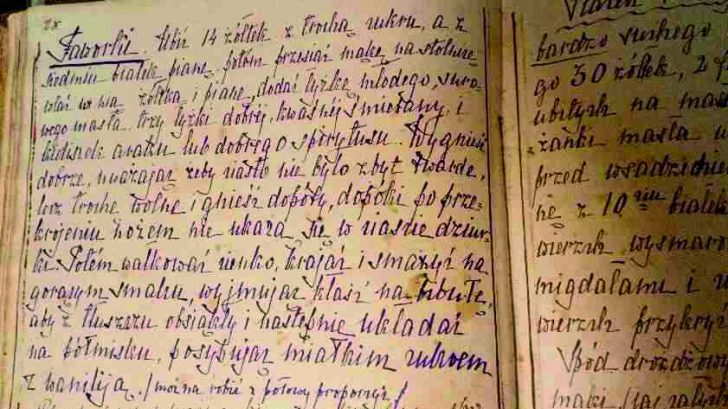 28
Faworki. Ubić 14 żółtek z trochą cukru, a z
siedmiu białek pianę, potem przesiać mąkę na stolnicę
wlać w nią żółtka i pianę, dodać łyżkę młodego, suro-
wego masła, trzy łyżki dobréj, kwaśnéj śmietany, i
kieliszek araku lub dobrego spirytusu. Wygnieść
dobrze, uważając żeby ciasto nie było zbyt twarde,
lecz trochę wolne i gnieść dopóty, dopóki po prze-
krojeniu nożem nie ukażą się w cieście dziur-
ki. Potem wałkować cienko, krajać i smażyć na
gorącym smalcu, wyjmując kłaść na bibułę,
aby z tłuszczu obsiąkły i następnie układać
na półmisku, posypując miałkim cukrem
z waniliją. / można robić z połowy proporcyi /
bardzo suchego
go 30 żółtek, 2
ubitych na
masła
przed wsadzeniem
nę z 10 ciu białek
wierzch, wysmaro
migdałami i
wierzch przykry
Spód drożdżowy
mąki